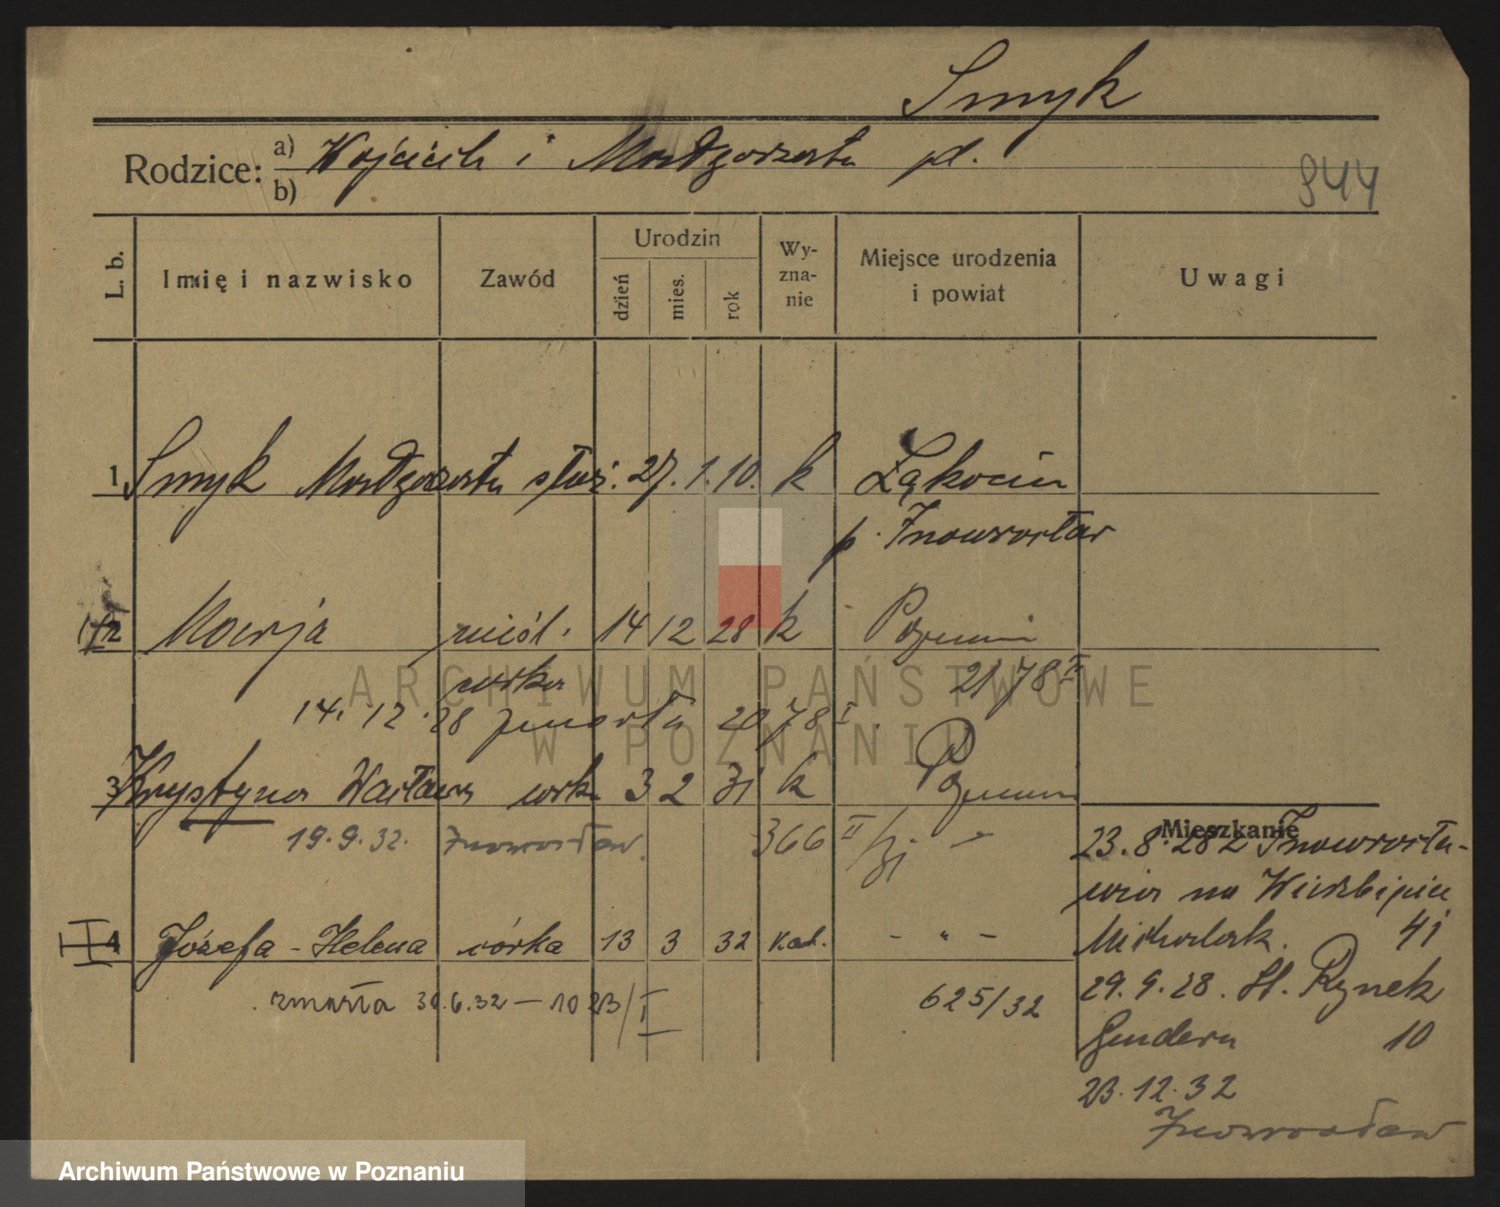 Smyk
Rodzice: a) Wojciech i Małgorzata pd.
b)
944
L. b.
Imię i nazwisko
Zawód
Urodzin
dzień
mies.
rok
Wy-
zna-
nie
Miejsce urodzenia
i powiat
Uwagi
1 Smyk Małgorzata służ. 27. 1. 10. k Łąkocin
p. Inowrocław
2 Marja nieśl. 14 12 28 k Poznań
córka 2178 II
14. 12. 28 zmarła 2078 I
3 Krystyna Wacława córk 3 2 31 k Poznań
19.9.32. Inowrocław. 366 II/31 -
Mieszkanie
23. 8. 28 z Inowrocła-
wia na Wierzbięcice
41
4 Józefa - Helena córka 13 3 32 kat. - " -
zmarła 30.6.32 - 1023/I 625/32
29. 9. 28. St. Rynek
10
23. 12. 32
Inowrocław
ARCHIWUM PAŃSTWOWE
W POZNANIU
Archiwum Państwowe w Poznaniu